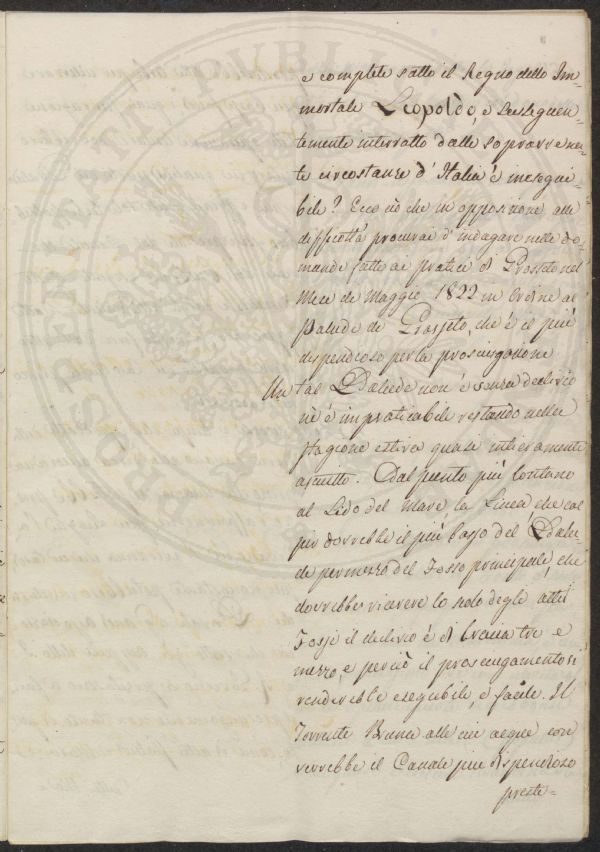 e complete sotto il Regno dello Im-
mortale Leopoldo, e susseguen-
temente interrotto dalle sopravvenu-
te circostanze d'Italia è inesegui-
bile? Ecco ciò che in opposizione alle
difficoltà procurai d'indagare nelle do-
mande fatte ai pratici di Grosseto nel
Mese de Maggio 1822 in Ordine al
Palude de Grosseto, che è il più
dispendioso per la prosciugazione
Un tal Palude non è senza declivio
nè è impraticabile restando nella
stagione estiva quasi intieramente
asciutto. Dal punto più lontano
al Lido del Mare la Linea che col
pir dovrebbe il più basso del Palu
de per mezzo del Fosso principale, che
dovrebbe ricevere lo scolo degli altri
Fossi il declivio è di braccia tre e
mezzo, e perciò il prosciugamento si
renderebbe eseguibile, e facile. Il
Torrente Bruna alle cui acque con
verrebbe il Canale più dispendioso
preste=
PROSPERITATI PUBLIC